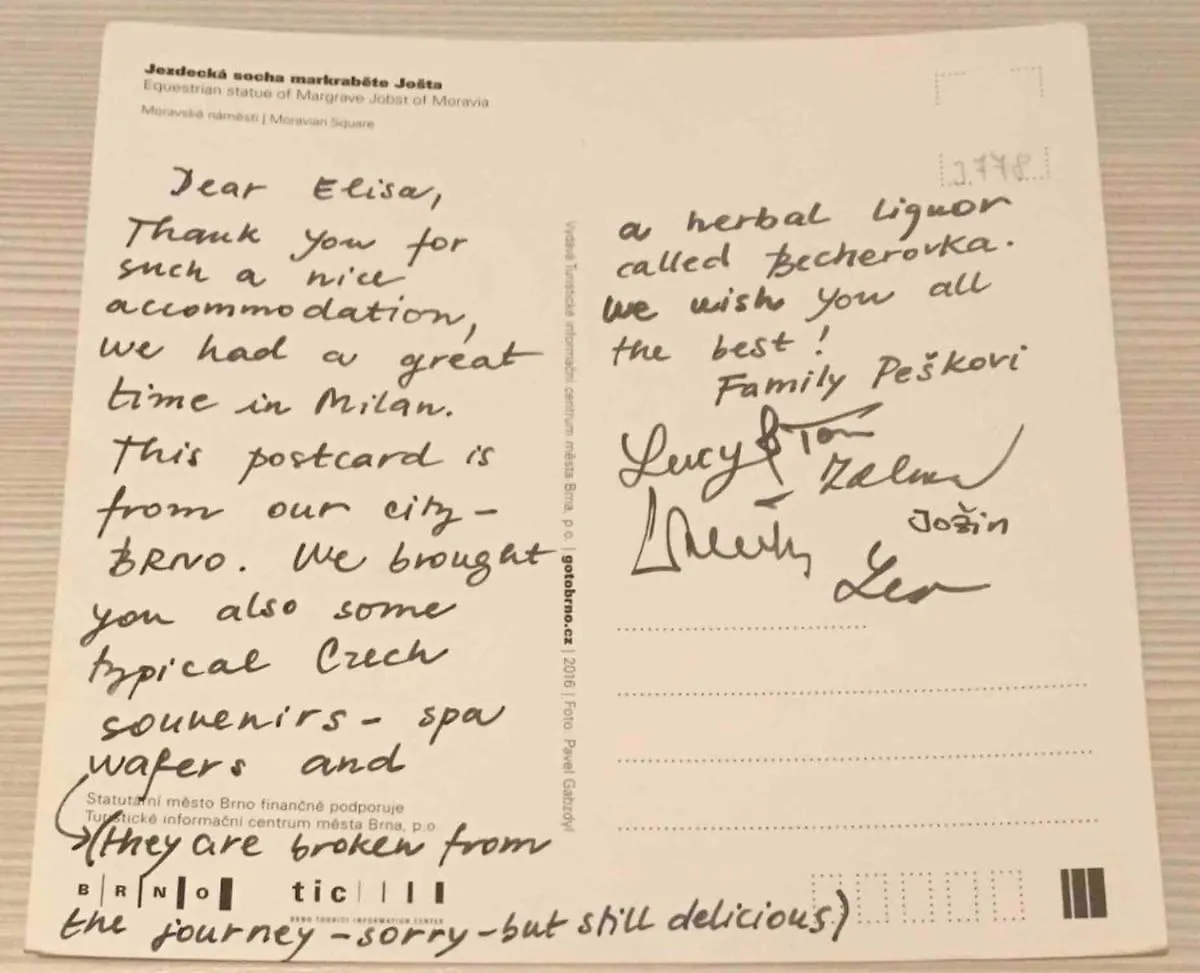 Jezdecká socha markraběte Jošta
Equestrian statue of Margrave Jobst of Moravia
Moravské náměstí | Moravian Square
Dear Elisa,
Thank you for
such a nice
accommodation,
we had a great
time in Milan.
This postcard is
from our city -
BRNO. We brought
you also some
typical Czech
souvenirs - spa
wafers and
Statutární město Brno finančně podporuje
Turistické informační centrum města Brna, p.o
(they are broken from
BRNO tic
BRNO TOURIST INFORMATION CENTER
the journey - sorry - but still delicious)
Vydává Turistické informační centrum města Brna, p.o. | gotobrno.cz | 2016 | Foto Pavel Gabzdyl
a herbal liquor
called Becherovka.
We wish you all
the best!
Family Peškovi
Lucy & Tom
Jožin